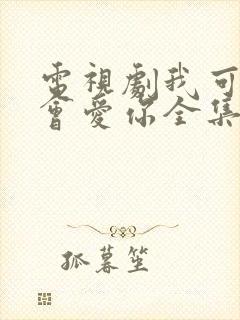 電視劇我可
會愛你全集
狐暮笙